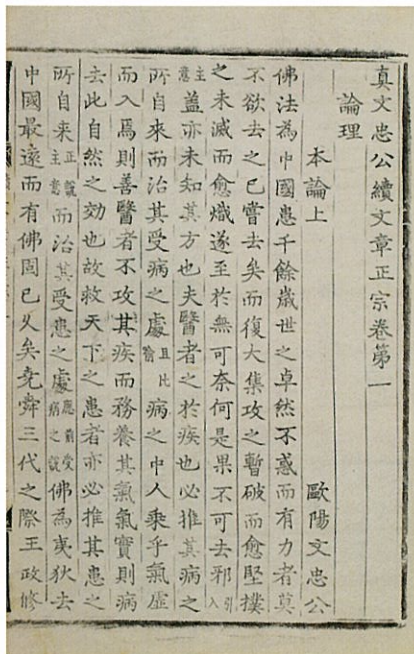 真文忠公續文章正宗卷第一
論理
本論上 歐陽文忠公
佛法為中國患千餘歲世之卓然不惑而有力者莫
不欲去之已嘗去矣而復大集攻之暫破而愈堅撲
之未滅而愈熾遂至於無可奈何是果不可去邪引入
主意盖亦未知其方也夫醫者之於疾也必推其病之
所自來而治其受病之處且比喻病之中人乘乎氣虛
而入焉則善醫者不攻其疾而務養其氣氣實則病
去此自然之効也故救天下之患者亦必推其患之
所自来正說主意而治其受患之處應前受病之說佛為夷狄去
中國最遠而有佛固已久矣堯舜三代之際王政修